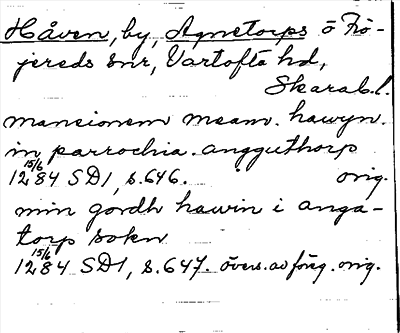 Håven, by, Agnetorps o Frö-
jereds snr, Vartofta hd,
Skarab.l.
mansionem meam. hawyn.
in parrochia. angguthorp
15/6
1284 SD1, s.646. orig.
min gordh hawin i anga-
torp sokn
15/6
1284 SD1, s.647. övers.av föreg. orig.